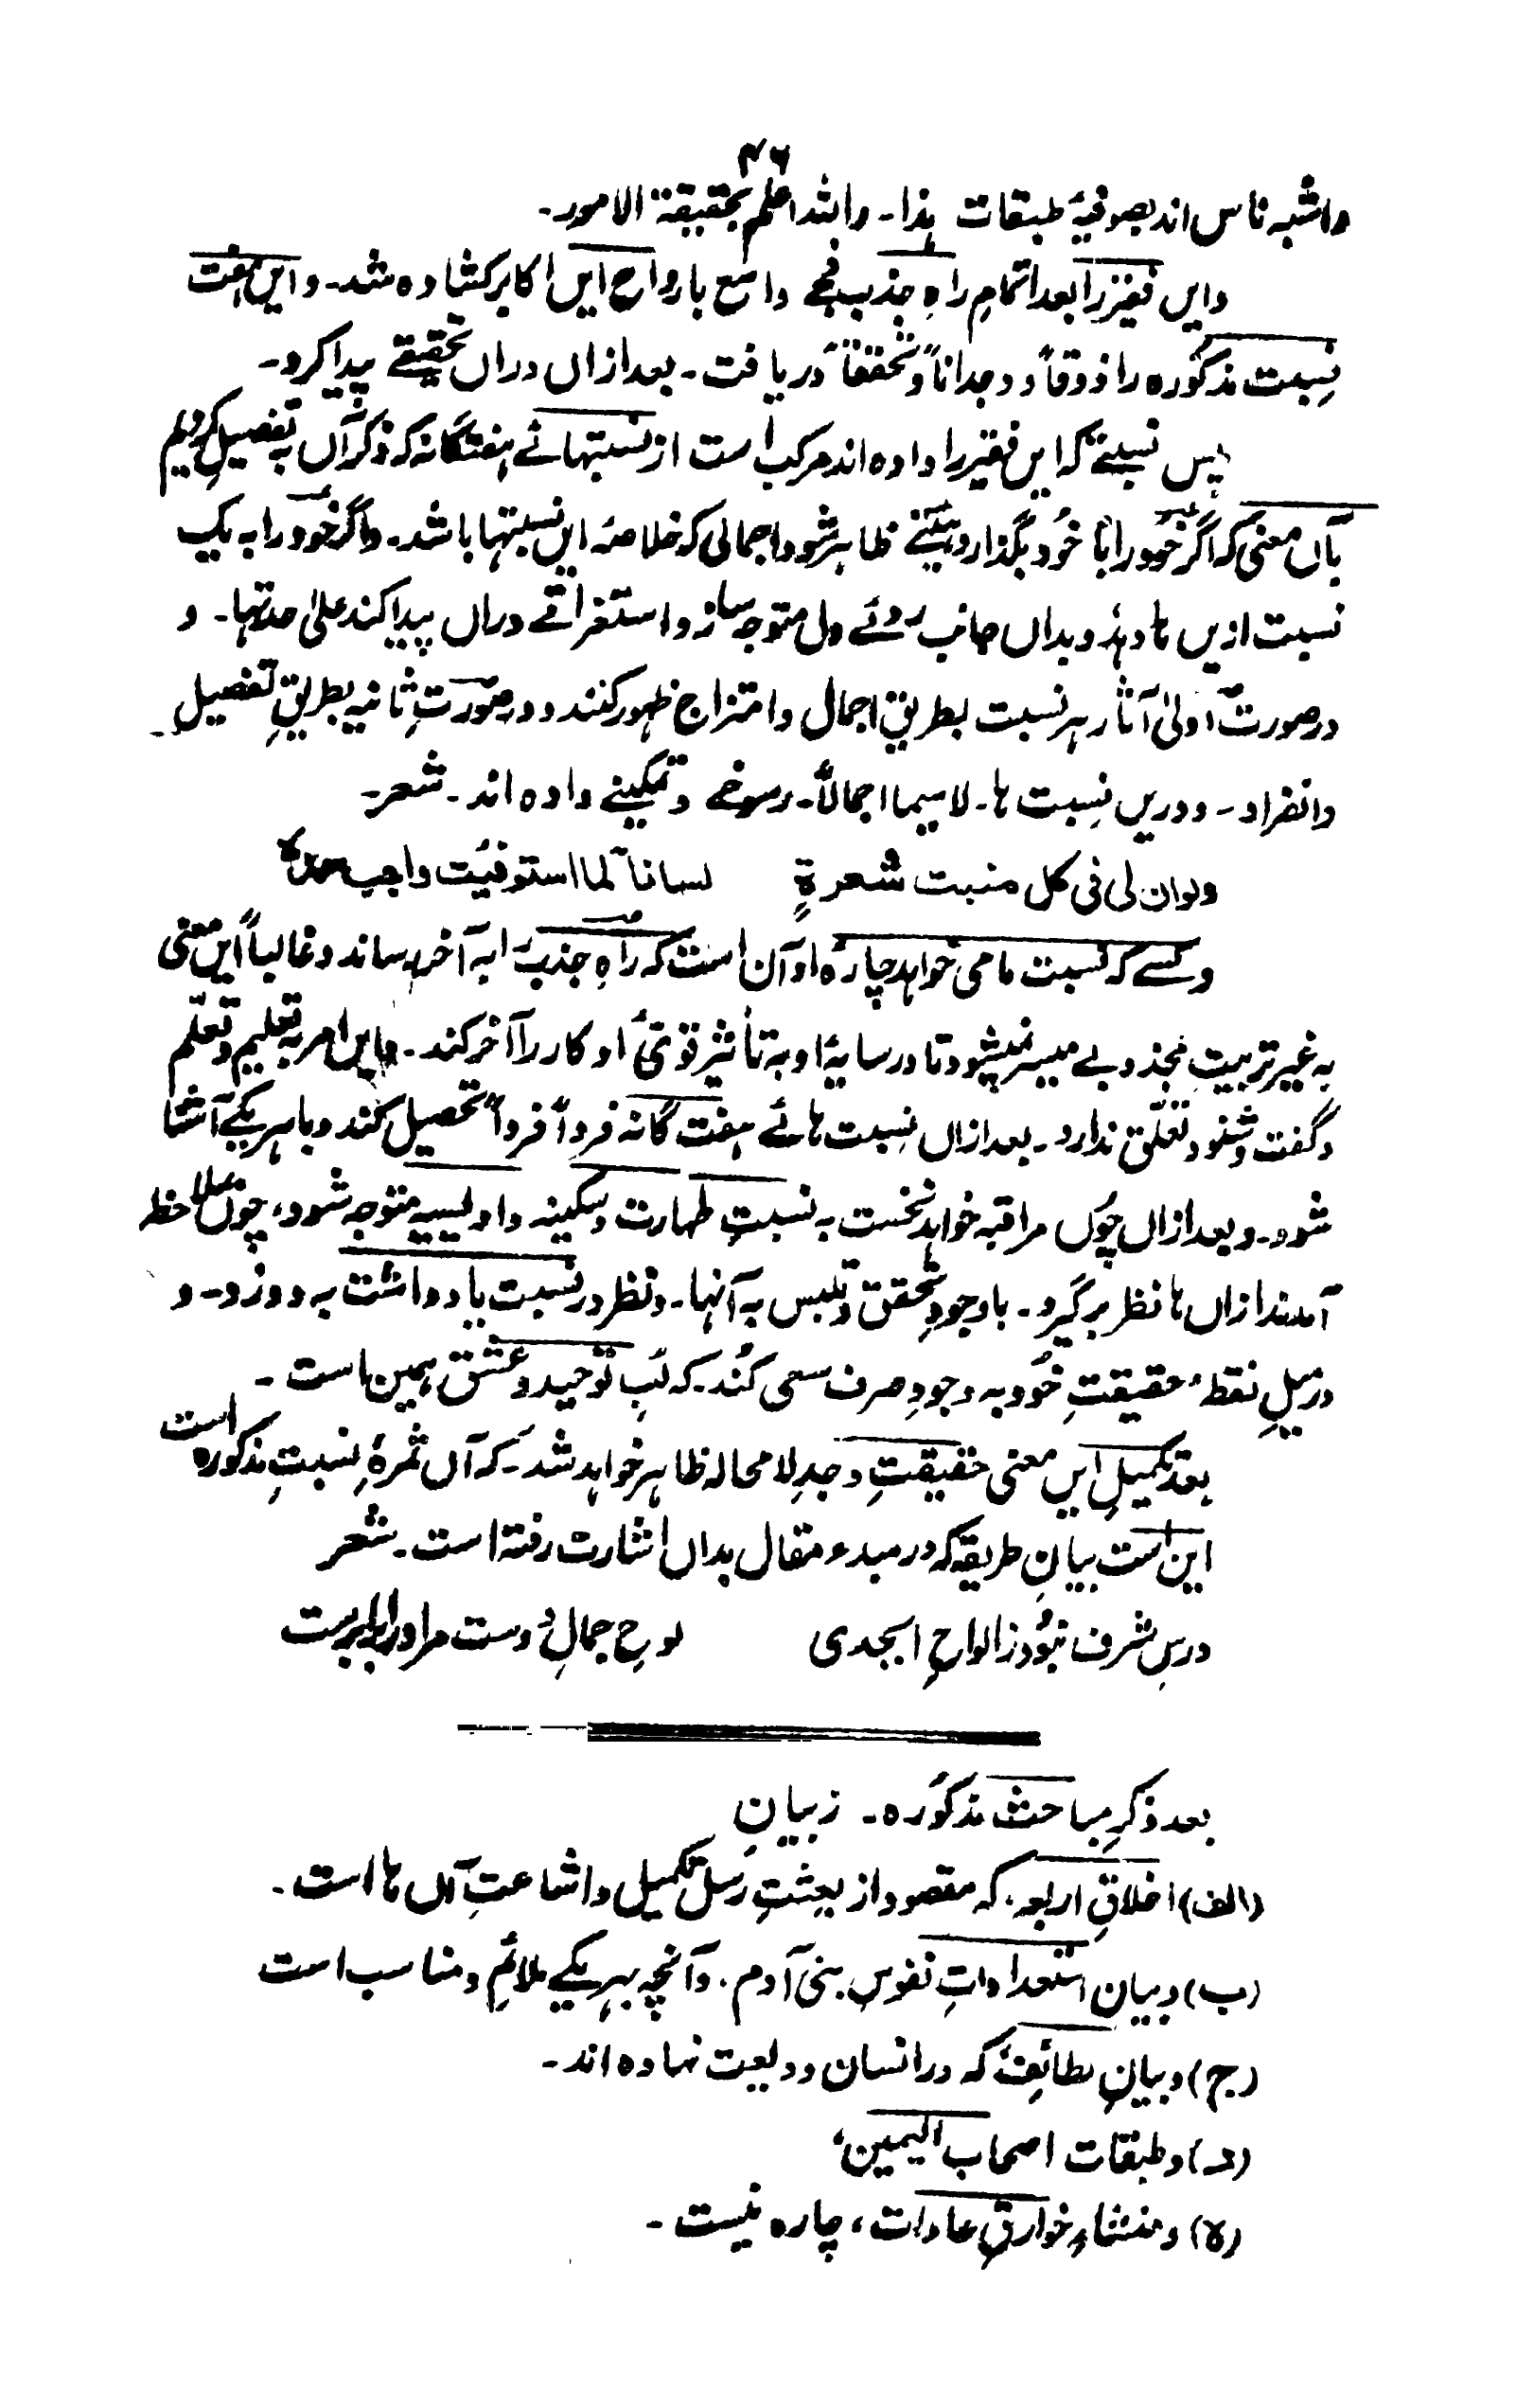 ۴۶
واشبہ ناس اند بصوفیۂ طبقات ہذا۔ واللہ اعلم بحقیقۃ الامور۔
وایں فقیر را بعد اتمامِ راہِ جذب فجے واسع بارواح ایں اکابر کشادہ شد۔ وایں ہفت
نِسبت مذکورہ را ذوقاً ووجداناً وتحققاً دریافت۔ بعد ازاں دراں تحقیقے پیدا کرد۔
پس نسبتے کہ ایں فقیر را دادہ اند مرکب است از نسبتہائے ہفتگانہ کہ ذکر آں بہ تفصیل کردیم
بآں معنی کہ اگر خود را با خود بگذارد ہیئتے ظاہر شود اجمالی کہ خلاصۂ ایں نسبتہا باشد۔ واگر خود را بہ یک
نسبت ازیں ہا دہد وبداں جانب روئے دل متوجہ سازد استغراقے دراں پیدا کند علیٰ حدتہا۔ و
درصورت اولیٰ آثار ہر نسبت بطریق اجمال وامتزاج ظہور کنند ودر صورتِ ثانیہ بطریقِ تفصیل
وانفراد۔ ودریں نِسبت ہا۔ لاسیما اجمالاً۔ رسوخے وتمکینے دادہ اند۔ شعر۔
ولوان لی فی کل منبت شعرۃٍ لسانا لما استوفیت واجب حمدہ
وکسے کہ نسبت ما می خواہد چارۂ او آن است کہ راہِ جذب را بہ آخر رساند وغالباً ایں معنی
بہ غیر تربیتِ مجذوبے میسر نمیشود تا در سایۂ او بہ تأثیر قوتیٔ او کار را آخر کند۔ وایں امر بہ تعلیم وتعلّم
وگفت وشنود تعلّق ندارد۔ بعد ازاں نِسبت ہائے ہفت گانہ فرداً فرداً تحصیل کند وباہر یکے آشنا
شود۔ وبعد ازاں چوں مراقبہ خواہد نخست بہ نسبتِ طہارت وسکینہ واویسیہ متوجہ شود، چوں ملاحظہ
آمدند ازاں ہا نظر برگیرد۔ باوجودِ تحقق وتلبس بہ آنہا۔ ونظر در نسبت یادداشت بہ دوزد۔ و
در میلِ نقطۂ حقیقتِ خود بہ وجودِ صرف سعی کُند۔ کہ لُبِ توحید وعشق ہمین است۔
بعد تکمیلِ ایں معنی حقیقتِ وجد لامحالہ ظاہر خواہد شد۔ کہ آں ثمرۂ نِسبتِ مذکورہ است
این است بیانِ طریقہ کہ در مبدء مقال بداں اشارت رفتہ است۔ شعر
درسِ شرف نبُود ز الواحِ ابجدی لوحِ جمالِ دوست مرا در برابرست
بعد ذکرِ مباحث مذکورہ۔ ز بیانِ
(الف) اخلاقِ اربعہ، کہ مقصود از بعثتِ رسل تکمیل واشاعتِ آں ہا است۔
(ب) وبیان استعداداتِ نفوسِ بنی آدم، وآنچہ بہر یکے ملائم ومناسب است
(ج) وبیانِ لطائف کہ در انسان ودیعت نہادہ اند۔
(د) وطبقات اصحاب الیمین،
(ہ) ومنشاءِ خوارقِ عادات، چارہ نیست۔